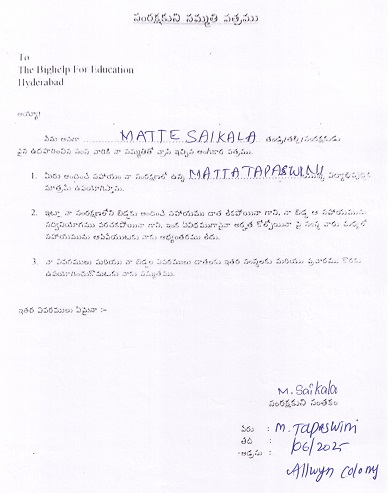 సంరక్షకుని సమ్మతి పత్రము
To
The Bighelp For Education
Hyderabad
అయ్యా!
నేను అనగా MATTE SAIKALA తండ్రి/తల్లి/సంరక్షకుడు
పైన ఉదహరించిన సంస్థ వారికి నా సమ్మతితో వ్రాసి ఇచ్చిన అంగీకార పత్రము.
1. మీరు అందించే సహాయం నా సంరక్షణలో ఉన్న MATTA TAPASWINI
మాత్రమే ఉపయోగిస్తాను.
2. ఇట్లా నా సంరక్షణలోని బిడ్డకు అందించే సహాయము దాత లేకపోయినా గాని, నా బిడ్డ ఆ సహాయమును
సద్వినియోగము పరచకపోయినా గాని, ఇంక ఏవిధముగానైనా అర్హత కోల్పోయినా పై సంస్థ వారు మధ్యలో
సహాయమును ఆపివేయుటకు నాకు అభ్యంతరము లేదు.
3. నా వివరములు మరియు నా బిడ్డల వివరములు దాతలకు ఇతర సంస్థలకు మరియు ప్రచారము కొరకు
ఉపయోగించుకొనుటకు నాకు సమ్మతము.
ఇతర వివరములు ఏమైనా :-
M. Saikala
సంరక్షకుని సంతకం
పేరు : M. TAPASWINI
తేది : /06/2025
అడ్రసు : Allwyn Colony